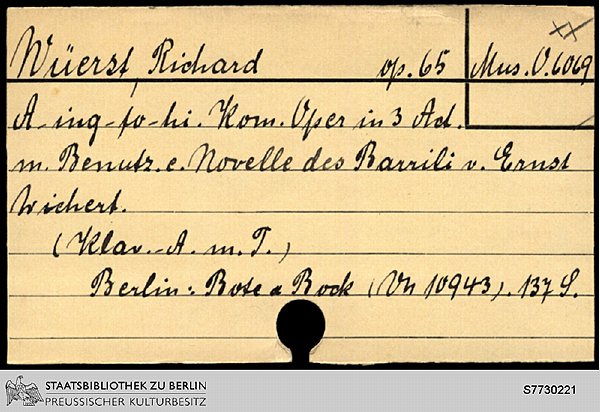 Wüerst, Richard op. 65 Mus. O. 6069
A-ing-fo-hi. Kom. Oper in 3 Act.
m. Benutz. e. Novelle des Barrili v. Ernst
Wichert.
(Klav.-A. m. T.)
Berlin: Bote a Bock (Vn 10943). 137 S.
STAATSBIBLIOTHEK ZU BERLIN
PREUSSISCHER KULTURBESITZ
S7730221